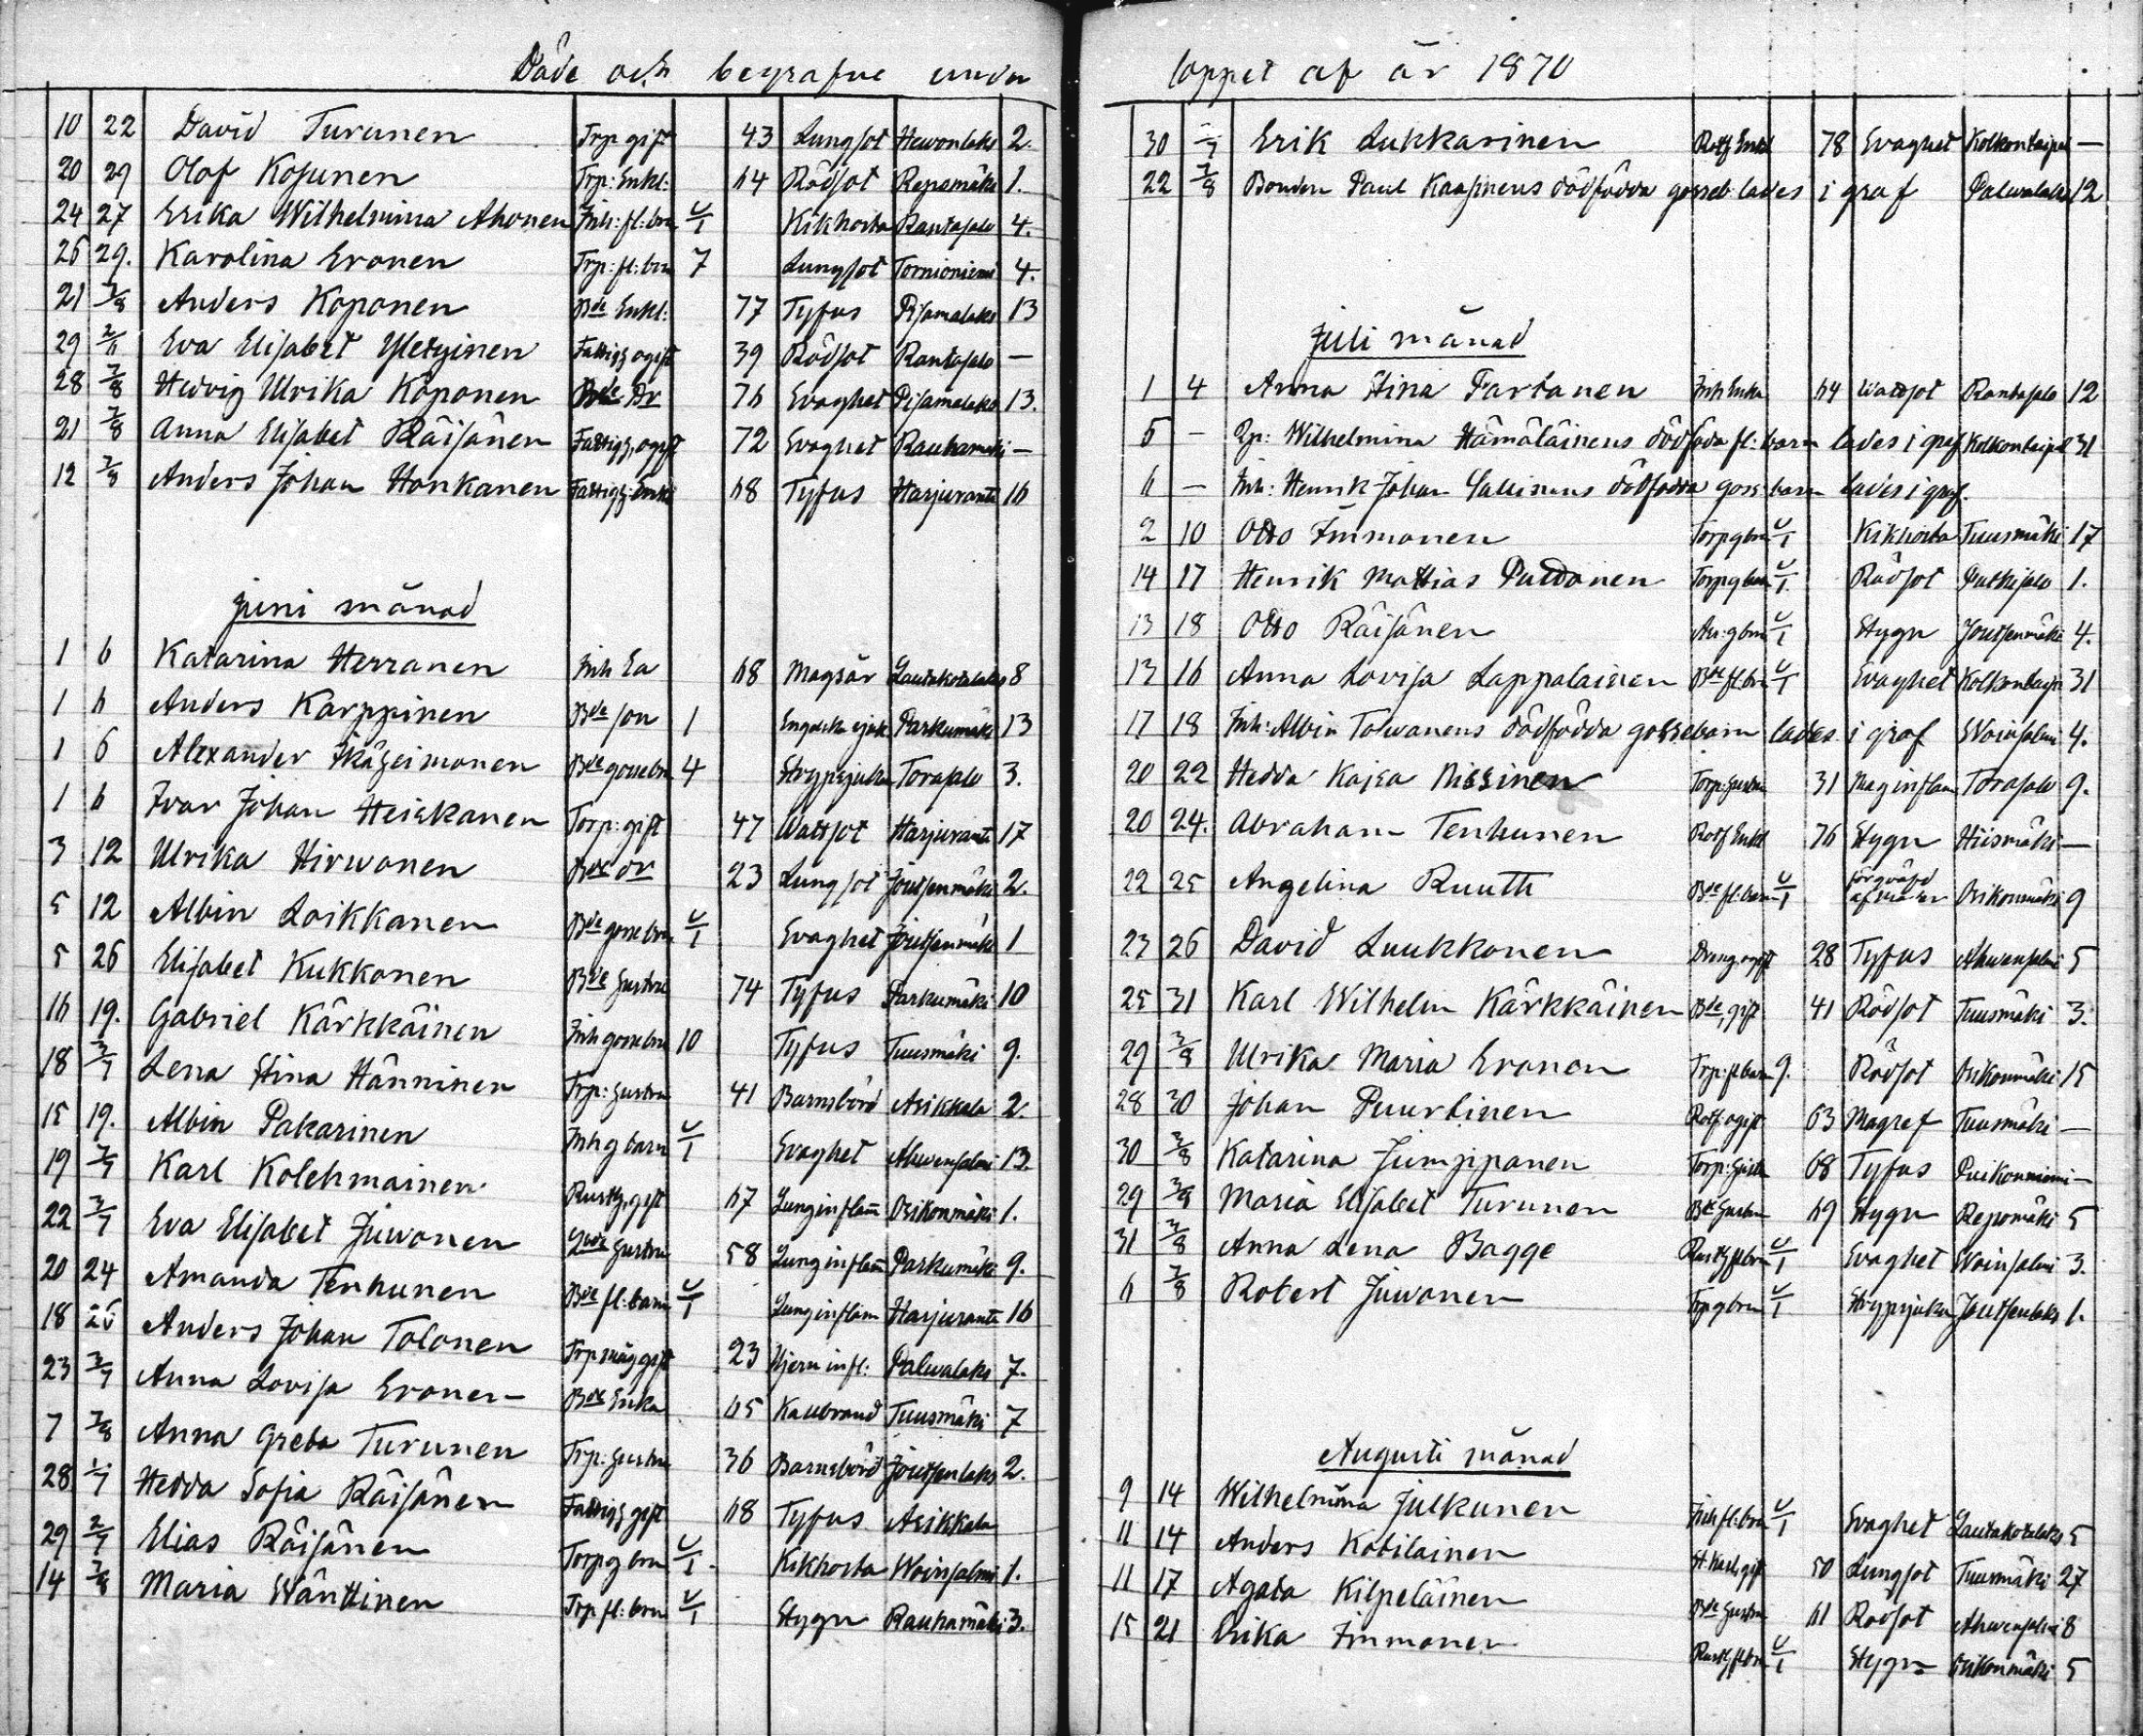 Döde och begrafne under
10 22 David Turunen Trp gift 43 Lungsot Hewonlaks 2.
20 29 Olof Kosunen Trp: Enkl: 64 Rödsot Reposmäki 1.
24 27 Erika Wilhelmina Ahonen Inh: fl: brn U/1 Kikhosta Rantasalo 4.
26 29. Karolina Eronen Trp: fl: brn 7 Lungsot Tornioniemi 4.
21 7/8 Anders Koponen Bde Enkl: 77 Typus Pisamalaks 13
29 2/6 Eva Elisabet Yletyinen Fattigh ogift 39 Rödsot Rantasalo —
28 7/8 Hedvig Ulrika Koponen Bde Dr 76 Svaghet Pisamalaks 13.
21 7/8 Anna Elisabet Räisänen Fattigh, ogift 72 Svaghet Rauhamäki —
12 7/8 Anders Johan Honkanen Fattigh: Enkl 68 Tyfus Harjuranta 16
Juni månad
1 6 Katarina Herranen Inh Ea 68 Magsår Lautakotalaks 8
1 6 Anders Karppinen Bde son 1 Engelska sjuk Parkumäki 13
1 6 Alexander Ikäheimonen Bde gossebrn 4 Strypsjukan Torasalo 3.
1 6 Ivar Johan Heiskanen Torp: gift 47 Wattsot Harjuranta 17
3 12 Ulrika Hirwonen Bde dr 23 Lungsot Joutsenmäki 2.
5 12 Albin Loikkanen Bde gosse brn U/1 Svaghet Joutsenmäki 1
5 26 Elisabet Kukkonen Bde hustru 74 Tyfus Parkumäki 10
16 19. Gabriel Kärkkäinen Inh gossebrn 10 Tyfus Tuusmäki 9.
18 3/7 Lena Stina Hänninen Trp: hustru 41 Barnsbörd Asikkala 2.
15 19. Albin Pakarinen Inh g barn U/1 Svaghet Ahwensalmi 13.
19 3/7 Karl Kolehmainen Rusth, gift 67 Lunginflam Osikonmäki 1.
22 3/7 Eva Elisabet Juwonen hustru 58 Lunginflam Parkumäki 9.
20 24 Amanda Tenhunen Bde fl: barn U/1 Lunginflam Harjuranta 16
18 26 Anders Johan Tolonen Trp måg gift 23 Hjern infl: Palwalaks 7.
23 3/7 Anna Lovisa Eronen Bde Enka 65 Kallbrand Tuusmäki 7
7 7/8 Anna Greta Turunen Trp: hustru 36 Barnsbörd Joutsenlaks 2.
28 1/7 Hedda Sofia Räisänen Fattigh gift 68 Tyfus Asikkala
29 2/7 Elias Räisänen Torp g brn U/1 Kikhosta Woinsalmi 1.
14 7/8 Maria Wänttinen Trp fl: brn U/1 Stygn Rauhamäki 3.
loppet af år 1870
30 /7 Erik Lukkarinen Rotf Enkl 78 Svaghet Kolkontaipal —
22 7/8 Bonden Paul Kaasinens dödfödda gosseb lades i graf Palwalaks 12
Juli månad
1 4 Anna Stina Partanen Inh Enka 64 Wattsot Rantasalo 12
5 — Pp: Wilhelmina Hämäläinens dödföda fl: barn lades i graf Kolkontaipal 31
6 — Inh: Henrik Johan Sallinens dödfödda goss: barn lades i graf.
2 10 Otto Immonen Torp g brn U/1 Kikhosta Tuusmäki 17
14 17 Henrik Mattias Puttonen Torp g brn U/1. Rödsot Putkisalo 1.
13 18 Otto Räisänen g brn U/1 Stygn Joutsenmäki 4.
13 16 Anna Lovisa Lappalainen Bde fl: brn U/1 Svaghet Kolkontaip 31
17 18 Inh: Albin Tolwanens dödfödda gossebarn lades i graf Woinsalmi 4.
20 22 Hedda Kajsa Nissinen Torp: hustru 31 Maginflam Torasalo 9.
20 24. Abraham Tenhunen Rotf Enkl 76 Stygn Hiismäki —
22 25 Angelina Ruuth Bde fl: barn U/1 förqväfd af modren Osikonmäki 9
23 26 David Luukkonen Dreng ogift 28 Tyfus Ahwensalmi 5
25 31 Karl Wilhelm Kärkkäinen Bde, gift 41 Rödsot Tuusmäki 3.
29 3/8 Ulrika Maria Eronen Trp: fl barn 9. Rödsot Osikonmäki 15
28 30 Johan Puurtinen Rotf: ogift 63 Magref Tuusmäki —
30 3/8 Katarina Jumppanen Torp: 68 Tyfus —
29 3/8 Maria Elisabet Turunen Bde hustru 69 Stygn Repomäki 5
31 3/8 Anna Lena Bagge Rusth fl brn U/1 Svaghet Woinsalmi 3.
6 7/8 Robert Juwonen Trp g brn U/1 Strypsjukan Joutsenlaks 1.
Augusti månad
9 14 Wilhelmina Julkunen Inh fl: brn U/1 Svaghet Lautakotalaks 5
11 14 Anders Kotilainen gift 50 Lungsot Tuusmäki 27
11 17 Agata Kilpeläinen Bde hustru 61 Rödsot Ahwensalmi 8
15 21 Erika Immonen Rusth fl brn U/1 Stygn Osikonmäki 5